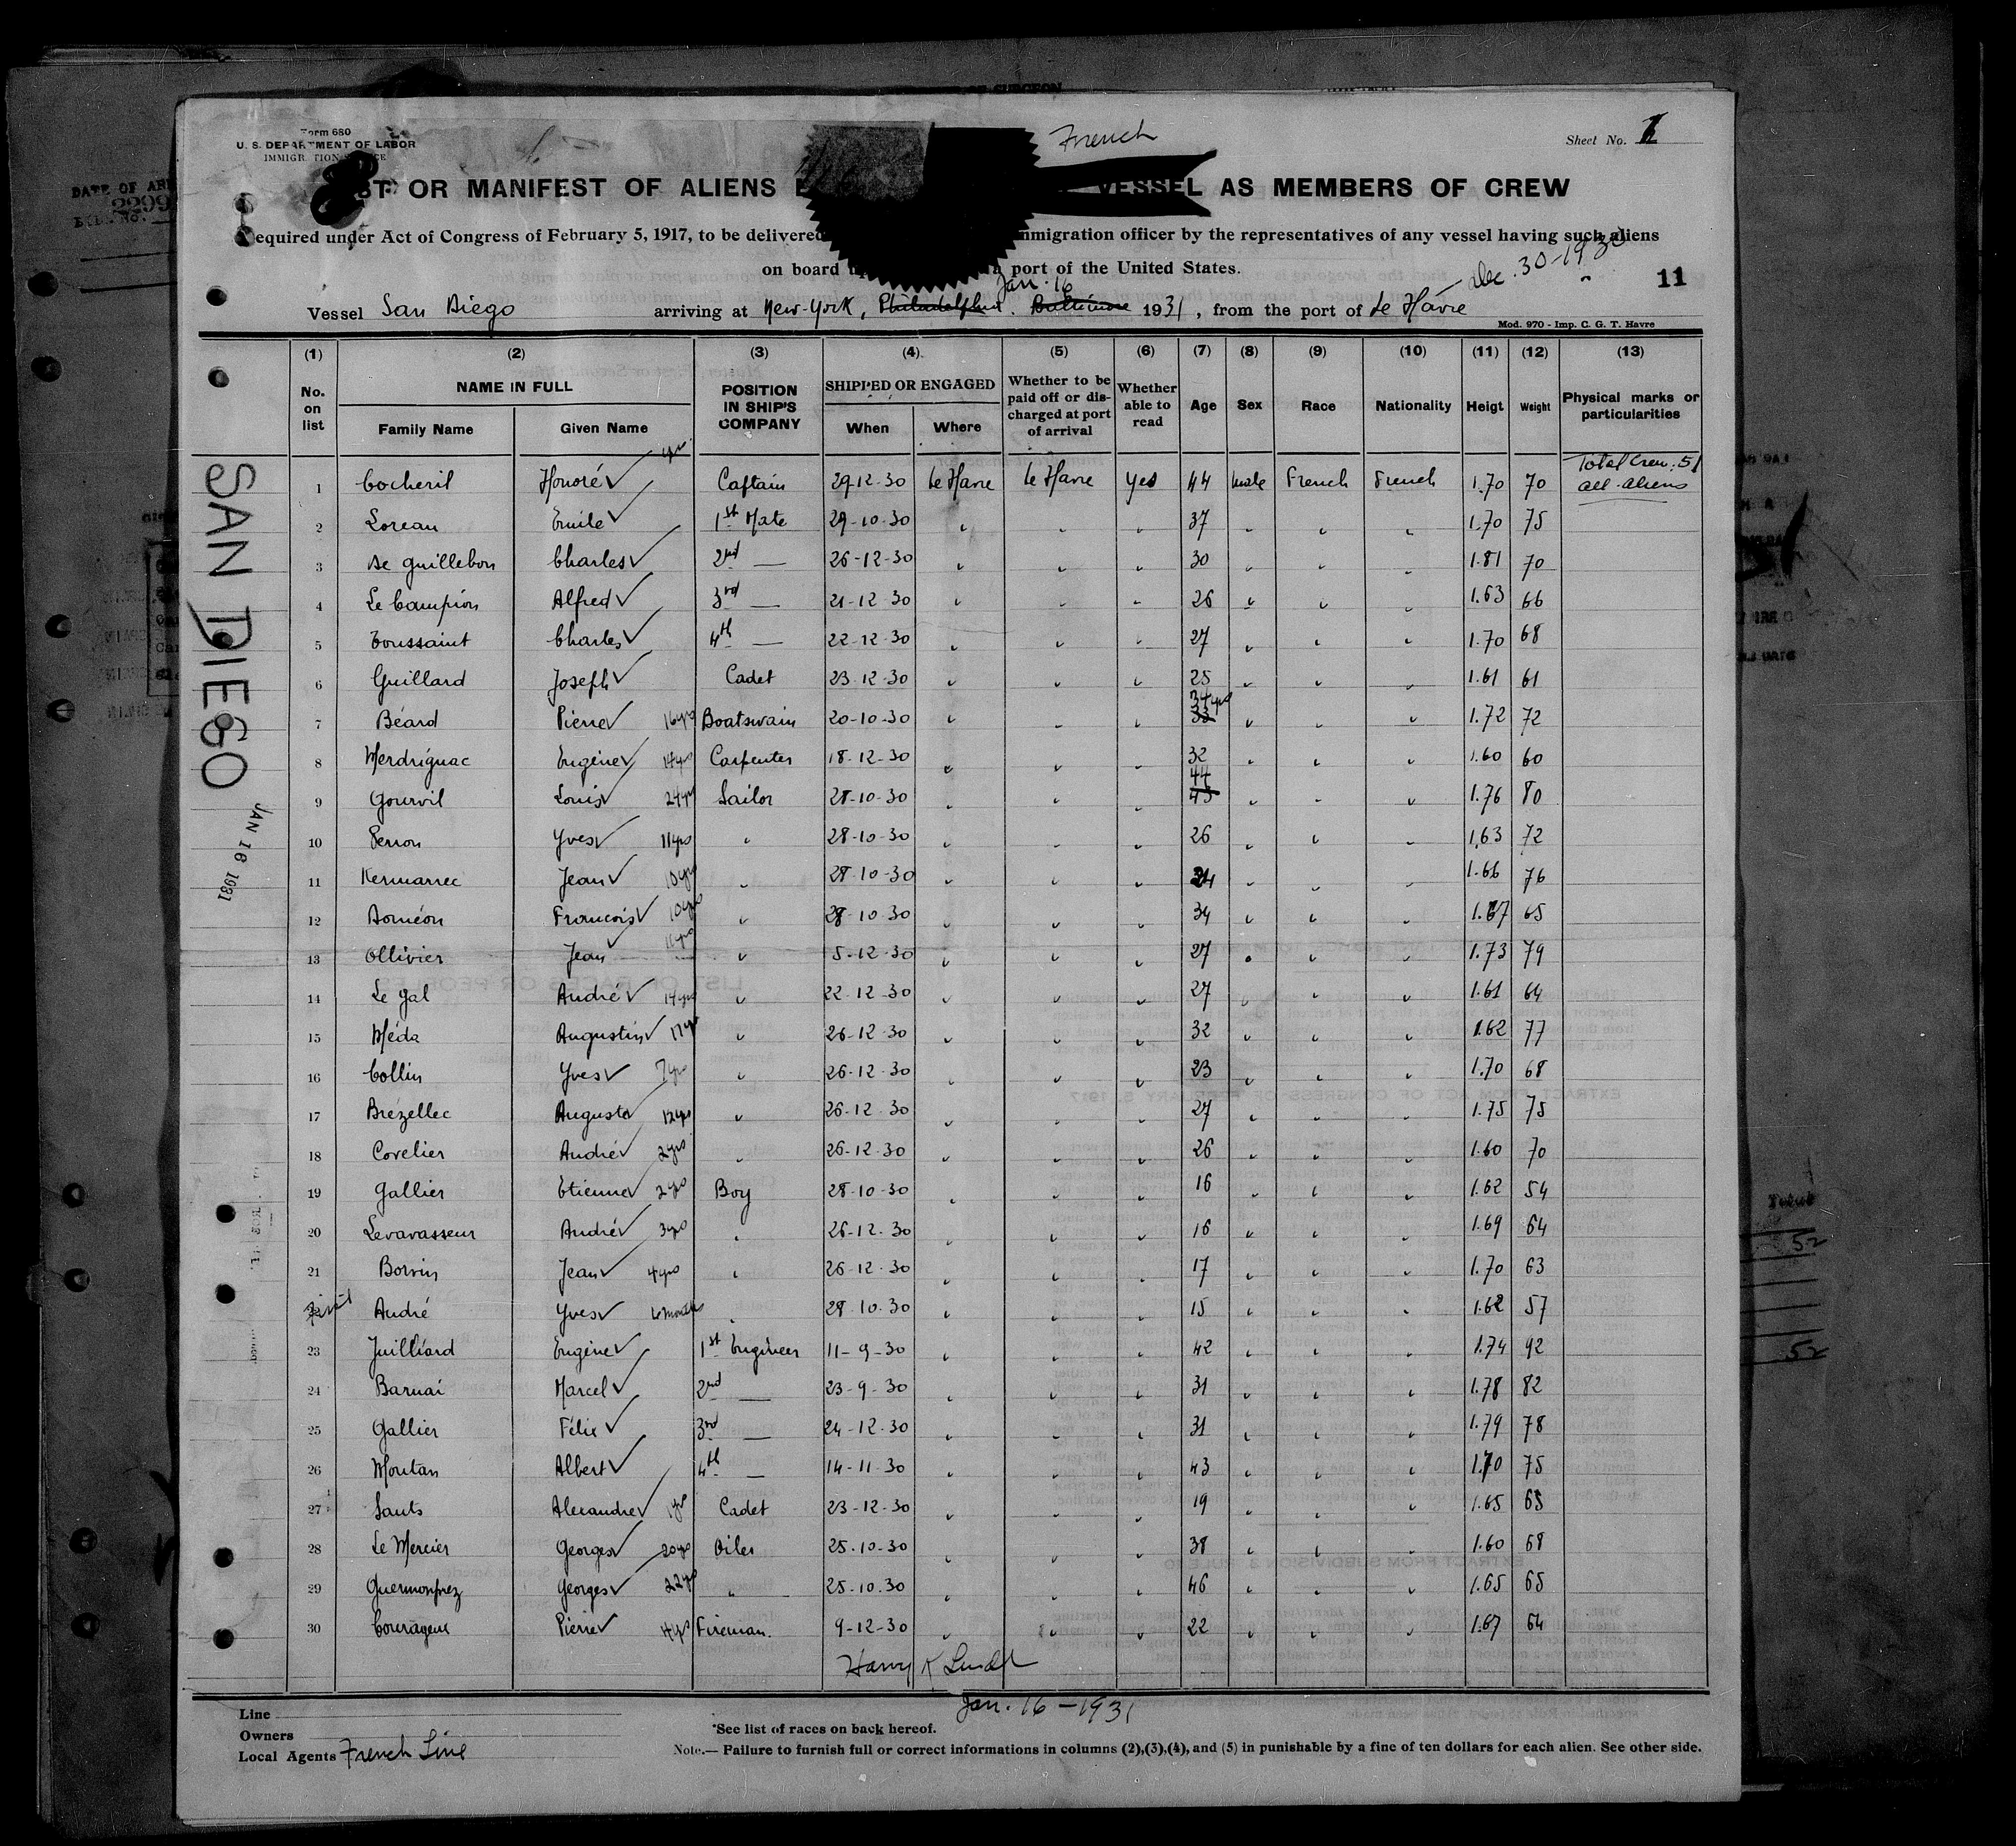 Form 680
U. S. DEPARTMENT OF LABOR
French
Sheet No. 1
OR MANIFEST OF ALIENS VESSEL AS MEMBERS OF CREW
equired under Act of Congress of February 5, 1917, to be delivered immigration officer by the representatives of any vessel having such aliens
on board a port of the United States.
Dec. 30-1930
11
Jan. 16
Vessel San Diego arriving at New-York, Philadelphia. Baltimore 1931, from the port of Le Havre
Mod. 970 - Imp. C. G. T. Havre
(1) (2) (3) (4) (5) (6) (7) (8) (9) (10) (11) (12) (13)
No. on list NAME IN FULL Family Name Given Name POSITION IN SHIP'S COMPANY SHIPPED OR ENGAGED When Where Whether to be paid off or discharged at port of arrival Whether able to read Age Sex Race Nationality Heigt Weight Physical marks or particularities
Total Crew: 51
all aliens
1 Cocheril Honoré Captain 29-12-30 Le Havre Le Havre Yes 44 Male French French 1.70 70
2 Loreau Emile 1st Mate 29-10-30 " " " 37 " " " 1.70 75
3 De Guillebon Charles 2nd — 26-12-30 " " " 30 " " " 1.81 70
4 Le Campion Alfred 3rd — 21-12-30 " " " 26 " " " 1.63 66
5 Toussaint Charles 4th — 22-12-30 " " " 27 " " " 1.70 68
6 Guillard Joseph Cadet 23-12-30 " " " 25 " " " 1.61 61
7 Béard Pierre 16yrs Boatswain 20-10-30 " " " 33 34yrs " " " 1.72 72
8 Merdrignac Eugène 14yrs Carpenter 18-12-30 " " " 32 " " " 1.60 60
9 Gourvil Louis 24yrs Sailor 28-10-30 " " " 43 44 " " " 1.76 80
10 Perron Yves 11yrs " 28-10-30 " " " 26 " " " 1.63 72
11 Kermarrec Jean 10yrs " 28-10-30 " " " 24 " " " 1.66 76
12 François 10yrs " 28-10-30 " " " 34 " " " 1.67 65
13 Ollivier Jean 11yrs " 5-12-30 " " " 27 " " " 1.73 79
14 Le Gal André 14yrs " 22-12-30 " " " 27 " " " 1.61 64
15 Augustin 17yrs " 26-12-30 " " " 32 " " " 1.62 77
16 Collin Yves 7yrs " 26-12-30 " " " 23 " " " 1.70 68
17 Brézellec Auguste 12yrs " 26-12-30 " " " 27 " " " 1.75 75
18 Covelier André 2yrs " 26-12-30 " " " 26 " " " 1.60 70
19 Gallier Etienne 2yrs Boy 28-10-30 " " " 16 " " " 1.62 54
20 Levavasseur André 3yrs " 26-12-30 " " " 16 " " " 1.69 64
21 Jean 4yrs " 26-12-30 " " " 17 " " " 1.70 63
22 First André Yves months " 28-10-30 " " " 15 " " " 1.62 57
23 Juilliard Eugène 1st Engineer 11-9-30 " " " 42 " " " 1.74 92
24 Marcel 2nd — 23-9-30 " " " 31 " " " 1.78 82
25 Gallier Félix 3rd — 24-12-30 " " " 31 " " " 1.79 78
26 Moutan Albert 4th — 14-11-30 " " " 43 " " " 1.70 75
27 Alexandre 1yr Cadet 23-12-30 " " " 19 " " " 1.65 65
28 Le Mercier Georges 20yrs Oiler 25-10-30 " " " 38 " " " 1.60 68
29 Guermonprez Georges 22yrs " 25-10-30 " " " 46 " " " 1.65 65
30 Courageux Pierre 4yrs Fireman. 9-12-30 " " " 22 " " " 1.67 64
Harry K
Jan. 16-1931
SAN DIEGO
JAN 16 1931
Line
Owners
Local Agents French Line
*See list of races on back hereof.
Note.— Failure to furnish full or correct informations in columns (2),(3),(4), and (5) in punishable by a fine of ten dollars for each alien. See other side.
Total
52
52